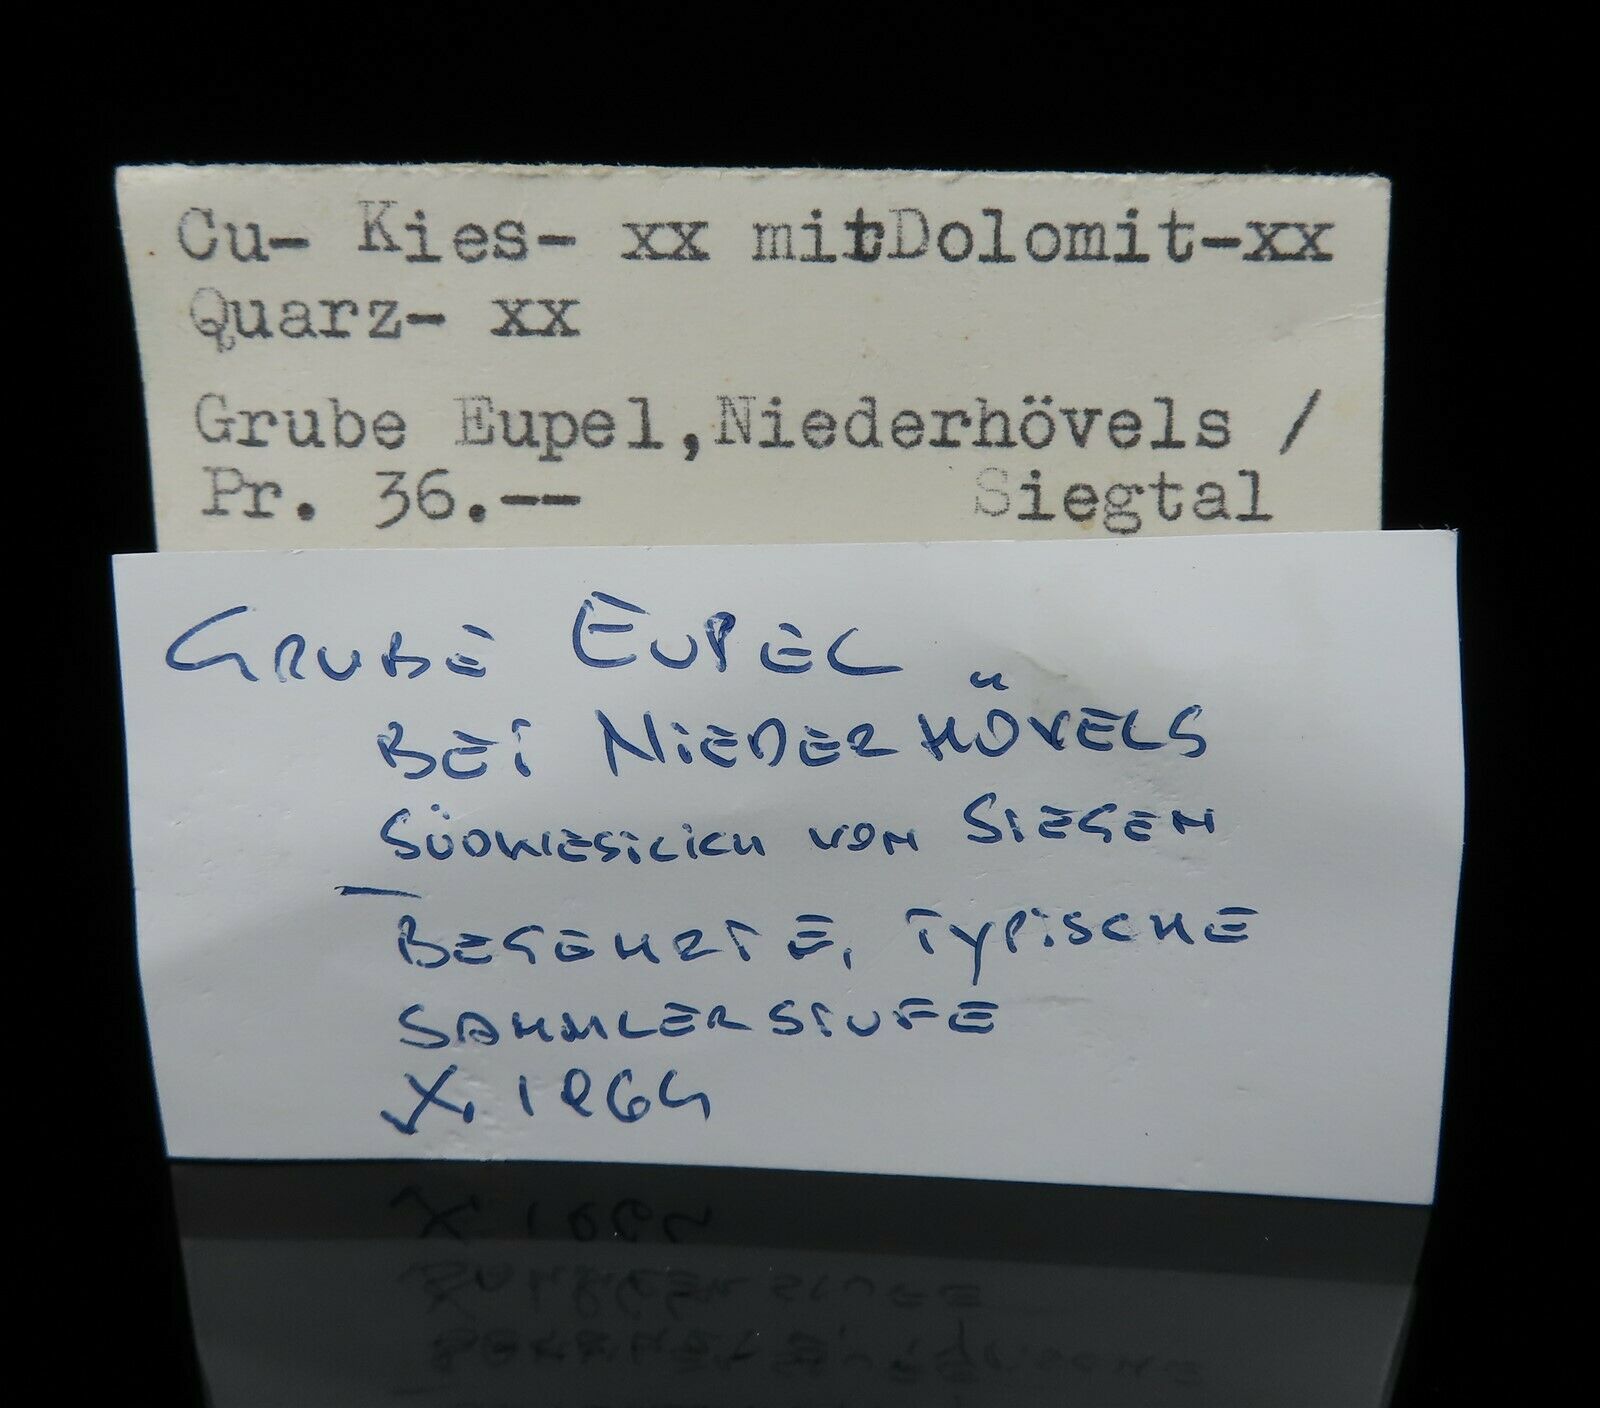 Cu- Kies- xx mit Dolomit-xx
Quarz- xx
Grube Eupel, Niederhövels /
Pr. 36.-- Siegtal
GRUBE EUPEL
BEI NIEDERHÖVELS
SÜDWESTLICH VON SIEGEN
BEGEHRTE, TYPISCHE
SAMMLERSTUFE
X. 1964